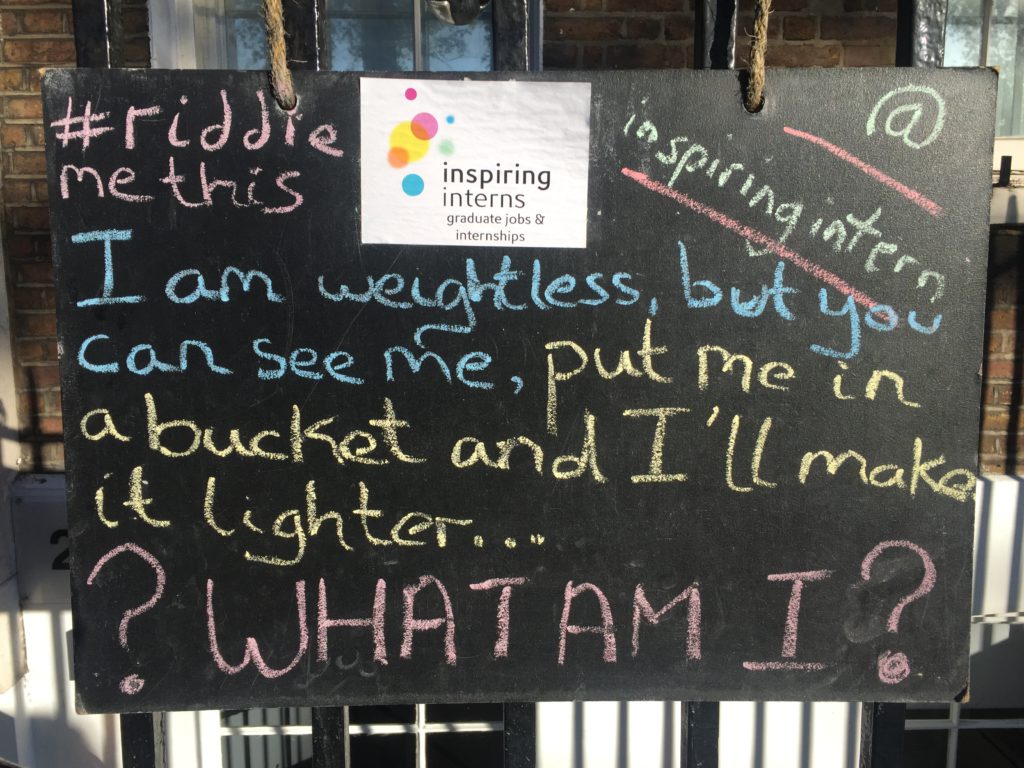 #riddle
me this
inspiring
interns
graduate jobs &
internships
@
inspiringintern
I am weightless, but you
can see me, put me in
a bucket and I'll make
it lighter....
? WHAT AM I ?